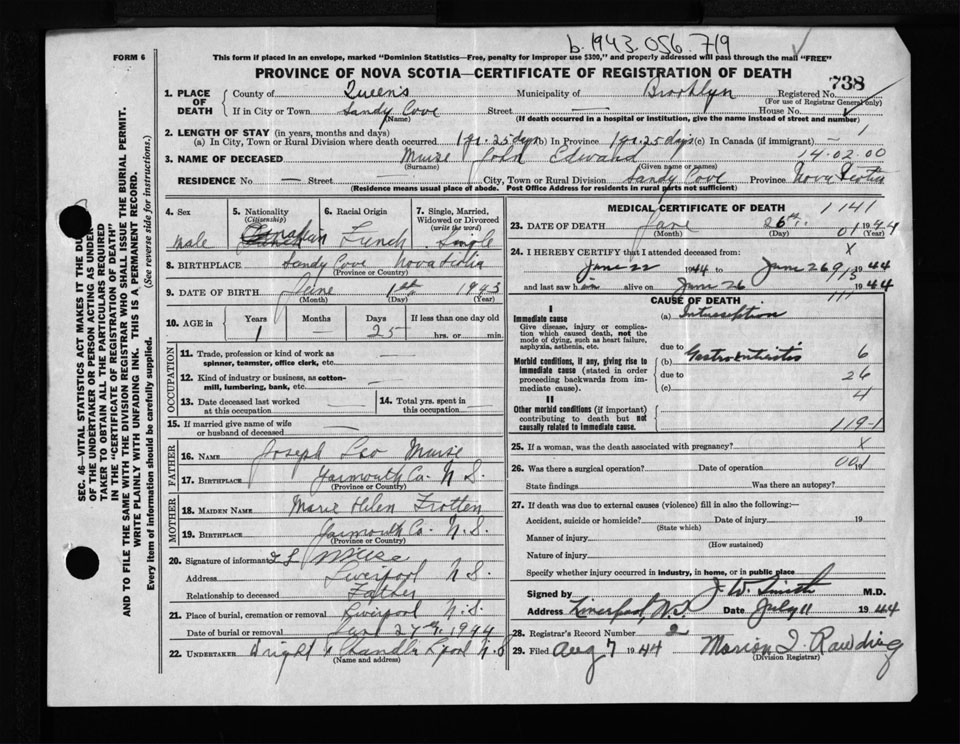 b.1943.056.719
FORM 6
This form if placed in an envelope, marked "Dominion Statistics—Free, penalty for improper use $300," and properly addressed will pass through the mail "FREE"
PROVINCE OF NOVA SCOTIA—CERTIFICATE OF REGISTRATION OF DEATH
738
1. PLACE OF DEATH County of Queen's Municipality of Brooklyn Registered No.
(For use of Registrar General only)
If in City or Town Sandy Cove Street — House No.
(Name) (If death occurred in a hospital or institution, give the name instead of street and number)
2. LENGTH OF STAY (in years, months and days)
(a) In City, Town or Rural Division where death occurred 1 yr. 25 days (b) In Province 1 yr. 25 days (c) In Canada (if immigrant) — 1
3. NAME OF DECEASED Muise John Edward 14-02.00
(Surname) (Given name or names)
RESIDENCE No. — Street — City, Town or Rural Division Sandy Cove Province Nova Scotia
(Residence means usual place of abode. Post Office Address for residents in rural parts not sufficient)
4. Sex Male
5. Nationality (Citizenship) Canadian
6. Racial Origin French
7. Single, Married, Widowed or Divorced (write the word) Single
8. BIRTHPLACE Sandy Cove Nova Scotia
(Province or Country)
9. DATE OF BIRTH June 1st 1943
(Month) (Day) (Year)
10. AGE in Years Months Days If less than one day old
1 — 25 hrs. or min.
OCCUPATION
11. Trade, profession or kind of work as spinner, teamster, office clerk, etc. —
12. Kind of industry or business, as cotton-mill, lumbering, bank, etc. —
13. Date deceased last worked at this occupation —
14. Total yrs. spent in this occupation —
15. If married give name of wife or husband of deceased —
FATHER
16. NAME Joseph Leo Muise
17. BIRTHPLACE Yarmouth Co. N.S.
(Province or Country)
MOTHER
18. MAIDEN NAME Marie Helen Frotten
19. BIRTHPLACE Yarmouth Co. N.S.
(Province or Country)
20. Signature of informant J L Muise
Address Liverpool N.S.
Relationship to deceased Father
21. Place of burial, cremation or removal Liverpool N.S.
Date of burial or removal 27th, 1944
22. UNDERTAKER Wright & Chandler L'pool N.S
(Name and address)
MEDICAL CERTIFICATE OF DEATH 1141
23. DATE OF DEATH June 26th 01 1944
(Month) (Day) (Year)
24. I HEREBY CERTIFY that I attended deceased from: X
June 22 1944 to June 26 1944
and last saw him alive on June 26 1944
CAUSE OF DEATH
I
Immediate cause
Give disease, injury or complication which caused death, not the mode of dying, such as heart failure, asphyxia, asthenia, etc.
(a) Intussception
due to
Morbid conditions, if any, giving rise to immediate cause (stated in order proceeding backwards from immediate cause).
(b) Gastroenteritis 6
due to 26
(c) 4
II
Other morbid conditions (if important) contributing to death but not causally related to immediate cause. 119-1
25. If a woman, was the death associated with pregnancy? X
26. Was there a surgical operation? Date of operation 001
State findings Was there an autopsy?
27. If death was due to external causes (violence) fill in also the following:—
Accident, suicide or homicide? Date of injury 19
(State which)
Manner of injury
(How sustained)
Nature of injury
Specify whether injury occurred in industry, in home, or in public place
Signed by J. W. Smith M.D.
Address Liverpool, N.S. Date July 11 1944
28. Registrar's Record Number 2
29. Filed Aug 7 1944 Marion I. Rawding
(Division Registrar)
SEC. 46—VITAL STATISTICS ACT MAKES IT THE DU
OF THE UNDERTAKER OR PERSON ACTING AS UNDER-
TAKER TO OBTAIN ALL THE PARTICULARS REQUIRED
IN THE "CERTIFICATE OF REGISTRATION OF DEATH"
AND TO FILE THE SAME WITH THE DIVISION REGISTRAR WHO SHALL ISSUE THE BURIAL PERMIT.
WRITE PLAINLY WITH UNFADING INK. THIS IS A PERMANENT RECORD.
Every item of information should be carefully supplied. (See reverse side for instructions.)